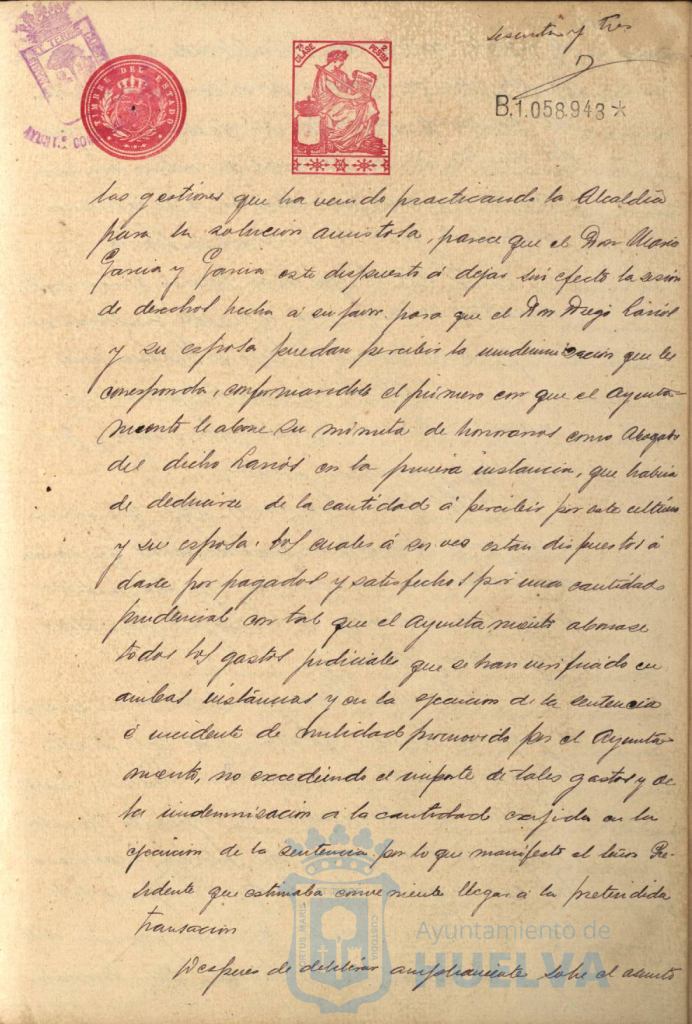 sesenta y tres
TIMBRE DEL ESTADO
7ª CLASE 2 PESTAS
B.1.058.943*
las gestiones que ha venido practicando la Alcaldía
para la solución amistosa, parece que el Don Mario
Garcia y Garcia este dispuesto á dejar sin efecto la sesión
de derechos hecha á su favor para que el Don Diego Larios
y su esposa puedan percibir la indemnizacion que les
corresponda, conformandose el primero con que el Ayunta-
miento le abone su minuta de honorarios como Abogado
del dicho Larios en la primera instancia, que habria
de deducirse de la cantidad á percibir por este ultimo
y su esposa, los cuales á su vez estan dispuestos á
darse por pagados y satisfechos por una cantidad
prudencial con tal que el Ayuntamiento abonase
todos los gastos judiciales que se han verificado en
ambas instancias y en la ejecucion de la sentencia
é incidente de nulidad promovido por el Ayunta-
miento, no excediendo el importe de tales gastos y de
la indemnisacion a la cantidad exigida en la
ejecucion de la sentencia por lo que manifestó el Señor Pre-
sidente que estimaba conveniente llegar á la pretendida
transacion
Despues de deliberar ampliamente sobre el asunto
PORTUS MARIS CUSTODIA
Ayuntamiento de
HUELVA